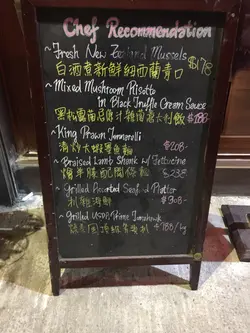 Chef Recommendation
~ Fresh New Zealand Mussels
白酒煮新鮮紐西蘭青口 $178
~ Mixed Mushroom Risotto
in Black Truffle Cream Sauce
黑松露菌忌廉汁雜菌意大利飯 $188
~ King Prawn
清炒大蝦墨魚麵 $208-
~ Braised Lamb Shank w/ Fettuccine
燴羊膝配闊條麵 $238
~ Grilled Assorted Seafood Platter
扒雜海鮮 $308-
~ Grilled USDA Prime Tomahawk
美國頂級 $188/